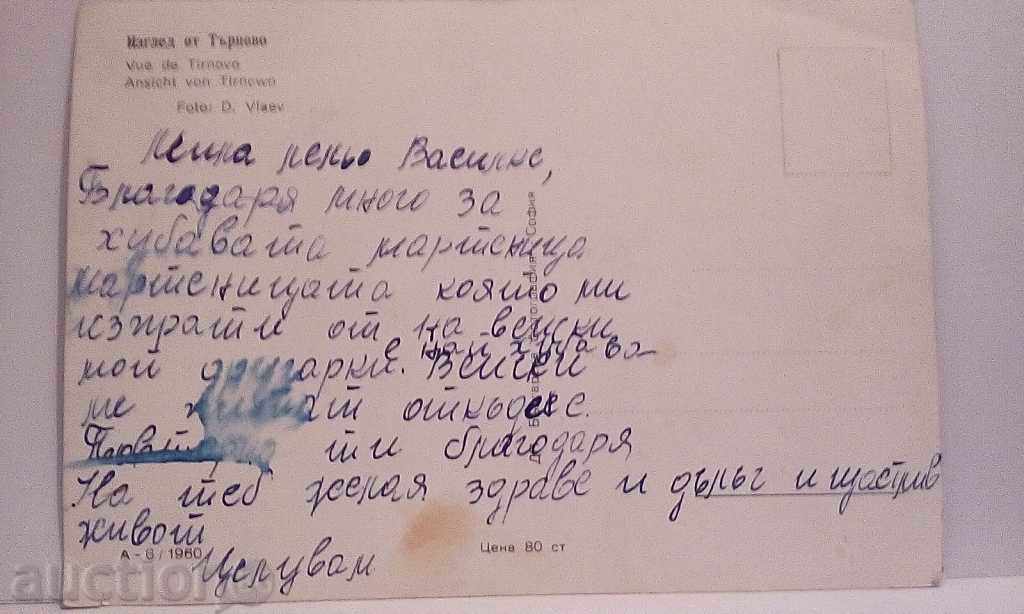 Изглед от Търново
Vue de Tirnovo
Ansicht von Tirnowo
Foto: D. Vlaev
Василке,
Благодаря много за
хубавата мартеница
мартеницата която ми
изпрати от на вси4ки
мой другарки е най хубава
Вси4ки
ме питат откъде е.
ти благодаря
На теб желая здраве и дълъг и щастлив
живот
Целувам
А-6/1960
Цена 80 ст
София
auction